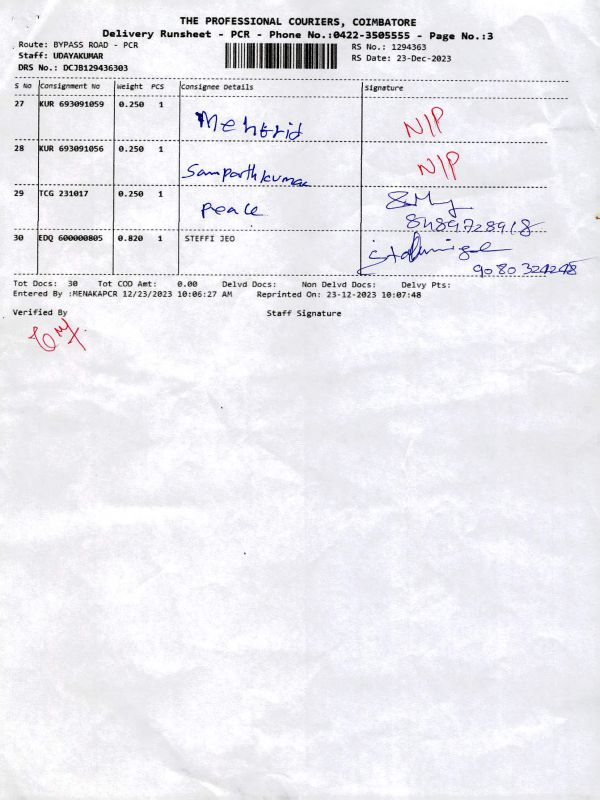 THE PROFESSIONAL COURIERS, COIMBATORE
Delivery Runsheet - PCR - Phone No.:0422-3505555 - Page No.:3
Route: BYPASS ROAD - PCR
Staff: UDAYAKUMAR
DRS No.: DCJB129436303
RS No.: 1294363
RS Date: 23-Dec-2023
S No Consignment No Weight PCS Consignee Details Signature
27 KUR 693091059 0.250 1 N/P
28 KUR 693091056 0.250 1 Samparthkumar N/P
29 TCG 231017 0.250 1 Peace
8489728918
30 EDQ 600000805 0.820 1 STEFFI JEO
9080324248
Tot Docs: 30 Tot COD Amt: 0.00 Delvd Docs: Non Delvd Docs: Delvy Pts:
Entered By :MENAKAPCR 12/23/2023 10:06:27 AM Reprinted On: 23-12-2023 10:07:48
Verified By Staff Signature